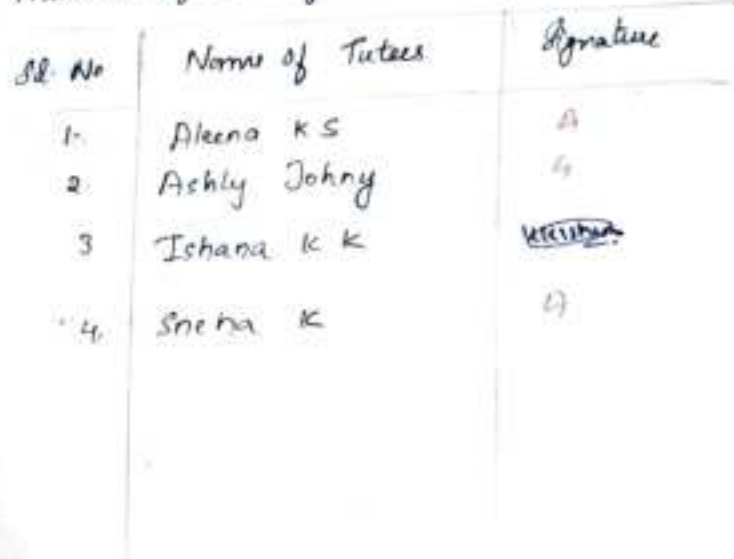 Sl. No Name of Tutees Signature
1. Aleena K S
2. Ashly Johny
3 Ishana K K
4. Sneha K